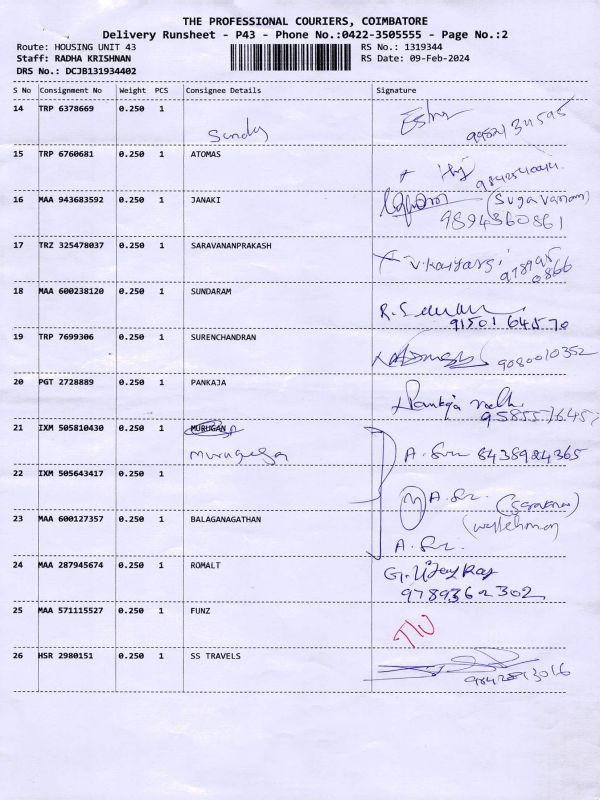 THE PROFESSIONAL COURIERS, COIMBATORE
Delivery Runsheet - P43 - Phone No.:0422-3505555 - Page No.:2
Route: HOUSING UNIT 43 RS No.: 1319344
Staff: RADHA KRISHNAN RS Date: 09-Feb-2024
DRS No.: DCJB131934402
S No Consignment No Weight PCS Consignee Details Signature
14 TRP 6378669 0.250 1
Sundy
15 TRP 6760681 0.250 1 ATOMAS
16 MAA 943683592 0.250 1 JANAKI (Sugavanam)
9894360861
17 TRZ 325478037 0.250 1 SARAVANANPRAKASH
18 MAA 600238120 0.250 1 SUNDARAM R.S
91501 64570
19 TRP 7699306 0.250 1 SURENCHANDRAN 9080010352
20 PGT 2728889 0.250 1 PANKAJA Pankja
21 IXM 505810430 0.250 1 MURUGAN
8438924365
22 IXM 505643417 0.250 1
23 MAA 600127357 0.250 1 BALAGANAGATHAN
24 MAA 287945674 0.250 1 ROMALT G. Vijay Raj
9789362302
25 MAA 571115527 0.250 1 FUNZ
26 HSR 2980151 0.250 1 SS TRAVELS